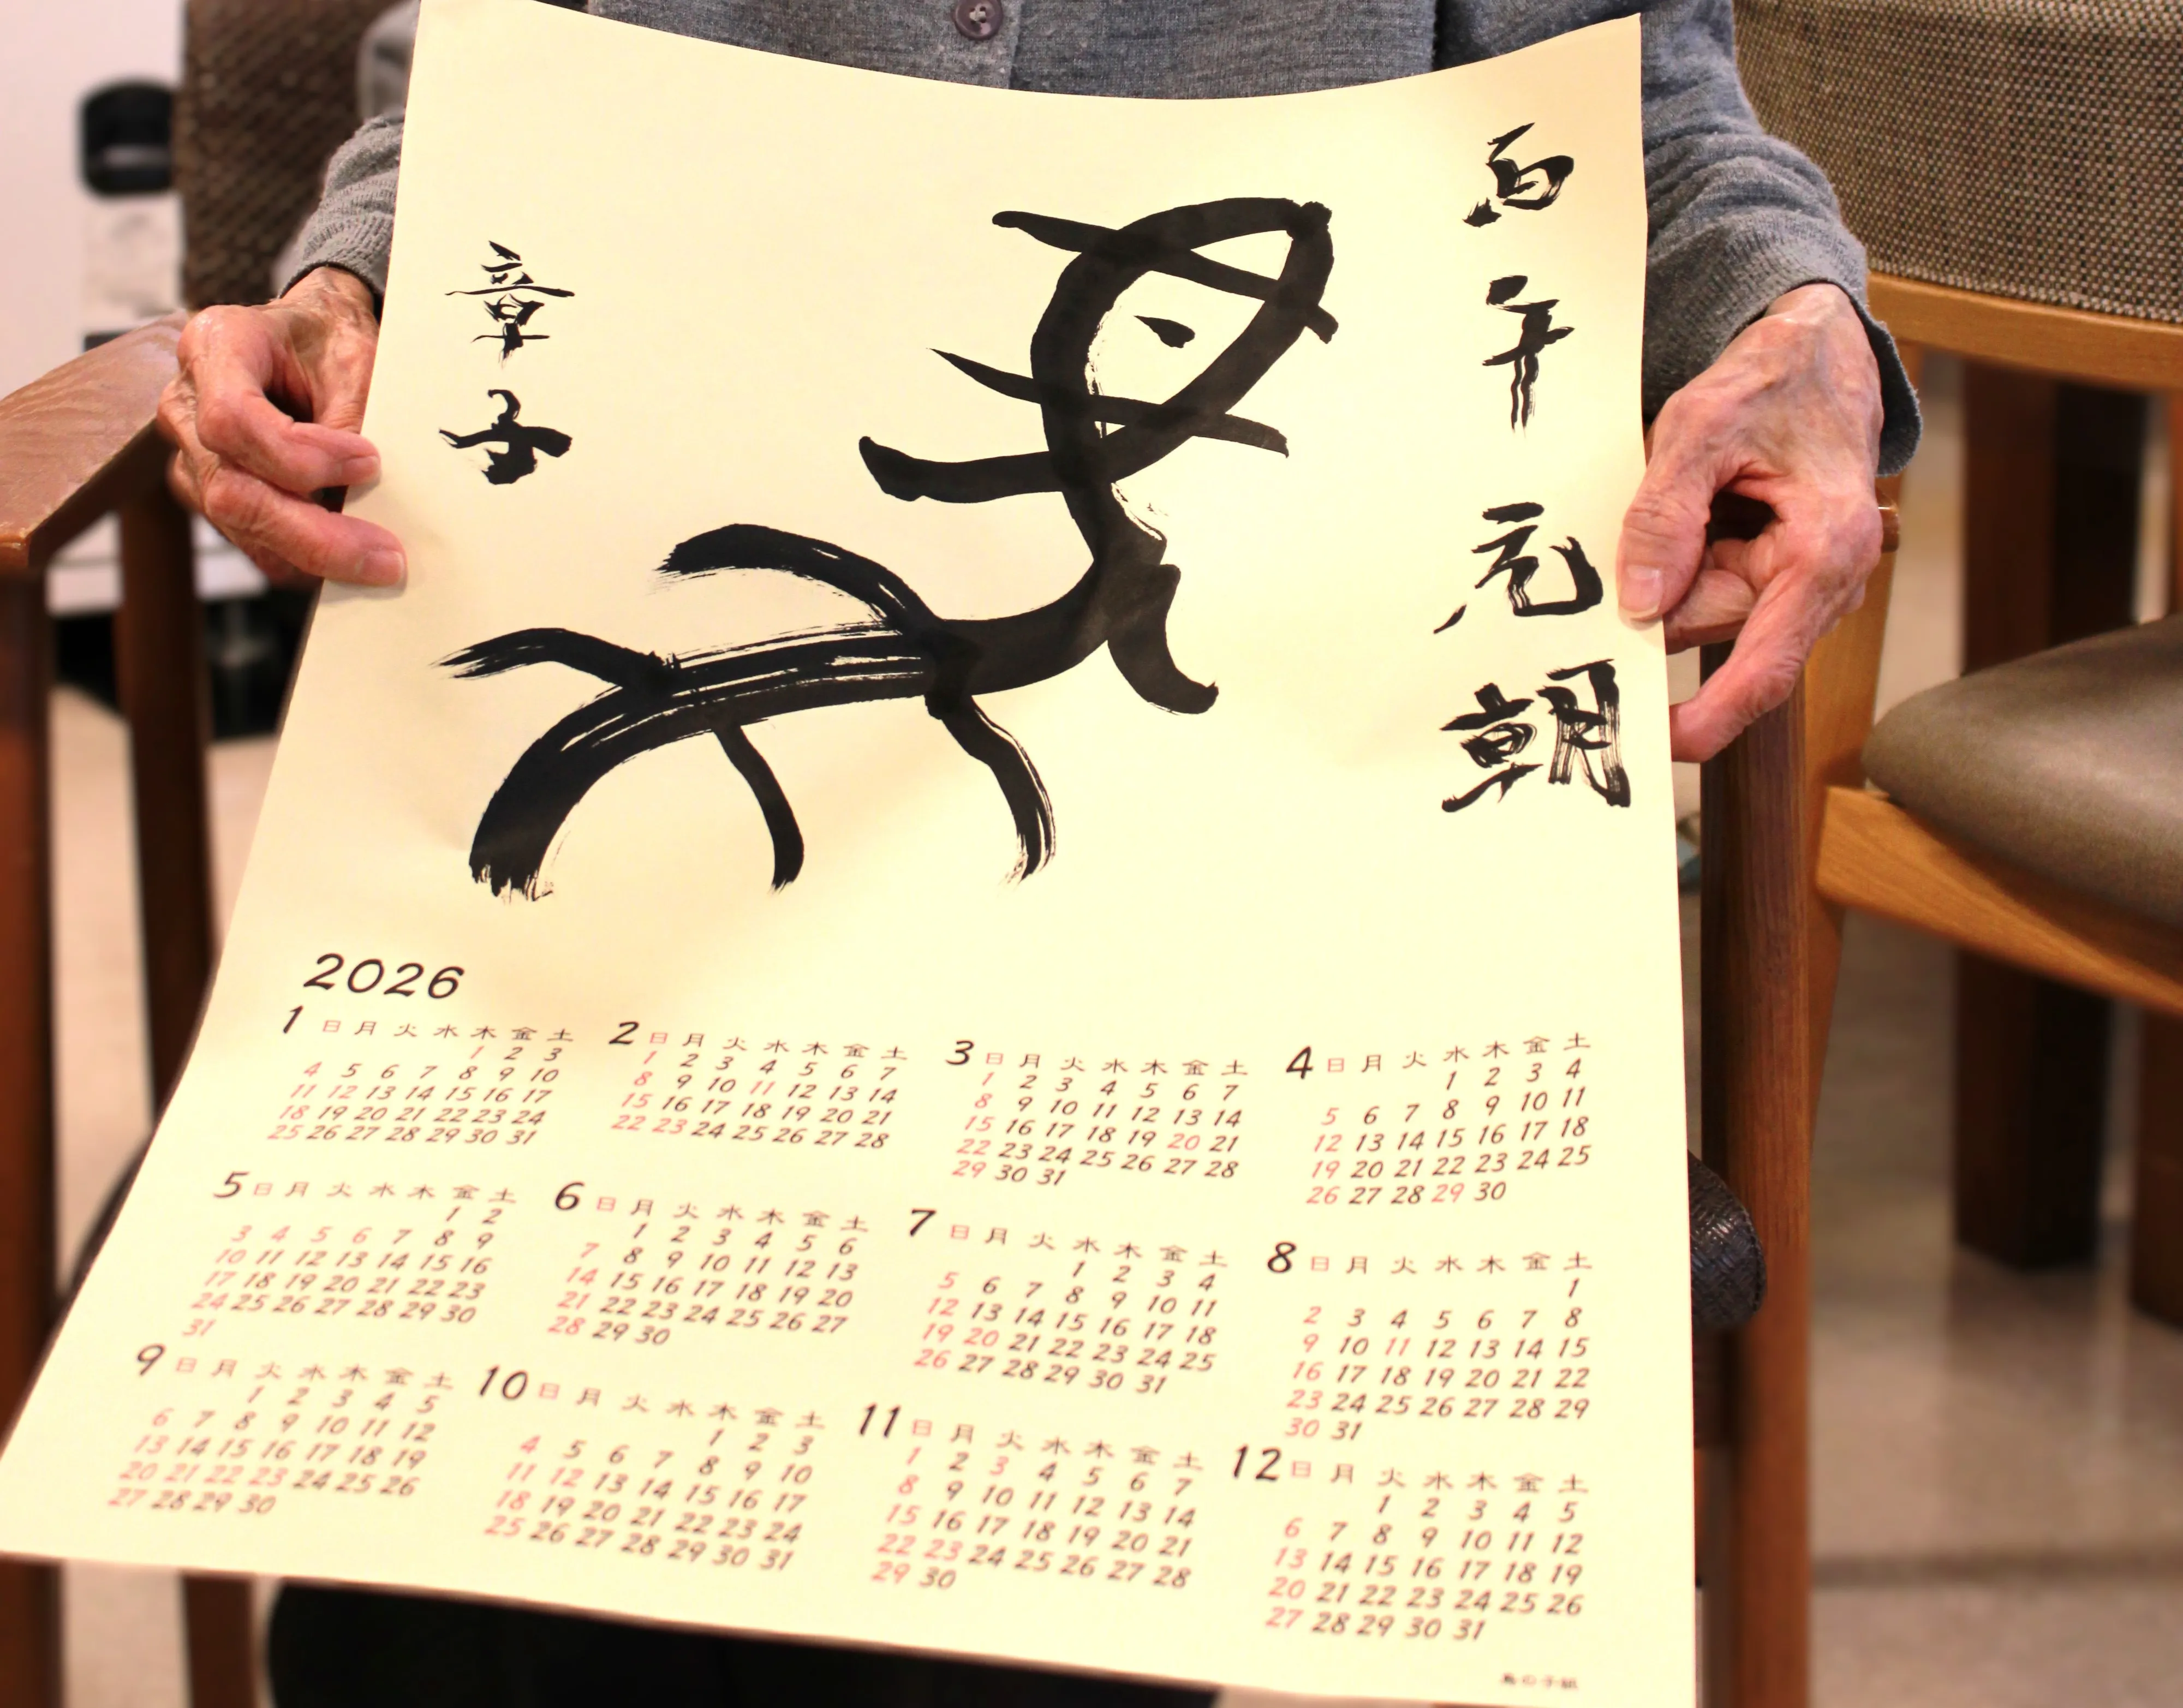 丙午元朝
章子
2026
1 日 月 火 水 木 金 土
1 2 3
4 5 6 7 8 9 10
11 12 13 14 15 16 17
18 19 20 21 22 23 24
25 26 27 28 29 30 31
2 日 月 火 水 木 金 土
1 2 3 4 5 6 7
8 9 10 11 12 13 14
15 16 17 18 19 20 21
22 23 24 25 26 27 28
3 日 月 火 水 木 金 土
1 2 3 4 5 6 7
8 9 10 11 12 13 14
15 16 17 18 19 20 21
22 23 24 25 26 27 28
29 30 31
4 日 月 火 水 木 金 土
1 2 3 4
5 6 7 8 9 10 11
12 13 14 15 16 17 18
19 20 21 22 23 24 25
26 27 28 29 30
5 日 月 火 水 木 金 土
1 2
3 4 5 6 7 8 9
10 11 12 13 14 15 16
17 18 19 20 21 22 23
24 25 26 27 28 29 30
31
6 日 月 火 水 木 金 土
1 2 3 4 5 6
7 8 9 10 11 12 13
14 15 16 17 18 19 20
21 22 23 24 25 26 27
28 29 30
7 日 月 火 水 木 金 土
1 2 3 4
5 6 7 8 9 10 11
12 13 14 15 16 17 18
19 20 21 22 23 24 25
26 27 28 29 30 31
8 日 月 火 水 木 金 土
1
2 3 4 5 6 7 8
9 10 11 12 13 14 15
16 17 18 19 20 21 22
23 24 25 26 27 28 29
30 31
9 日 月 火 水 木 金 土
1 2 3 4 5
6 7 8 9 10 11 12
13 14 15 16 17 18 19
20 21 22 23 24 25 26
27 28 29 30
10 日 月 火 水 木 金 土
1 2 3
4 5 6 7 8 9 10
11 12 13 14 15 16 17
18 19 20 21 22 23 24
25 26 27 28 29 30 31
11 日 月 火 水 木 金 土
1 2 3 4 5 6 7
8 9 10 11 12 13 14
15 16 17 18 19 20 21
22 23 24 25 26 27 28
29 30
12 日 月 火 水 木 金 土
1 2 3 4 5
6 7 8 9 10 11 12
13 14 15 16 17 18 19
20 21 22 23 24 25 26
27 28 29 30 31
鳥の子紙